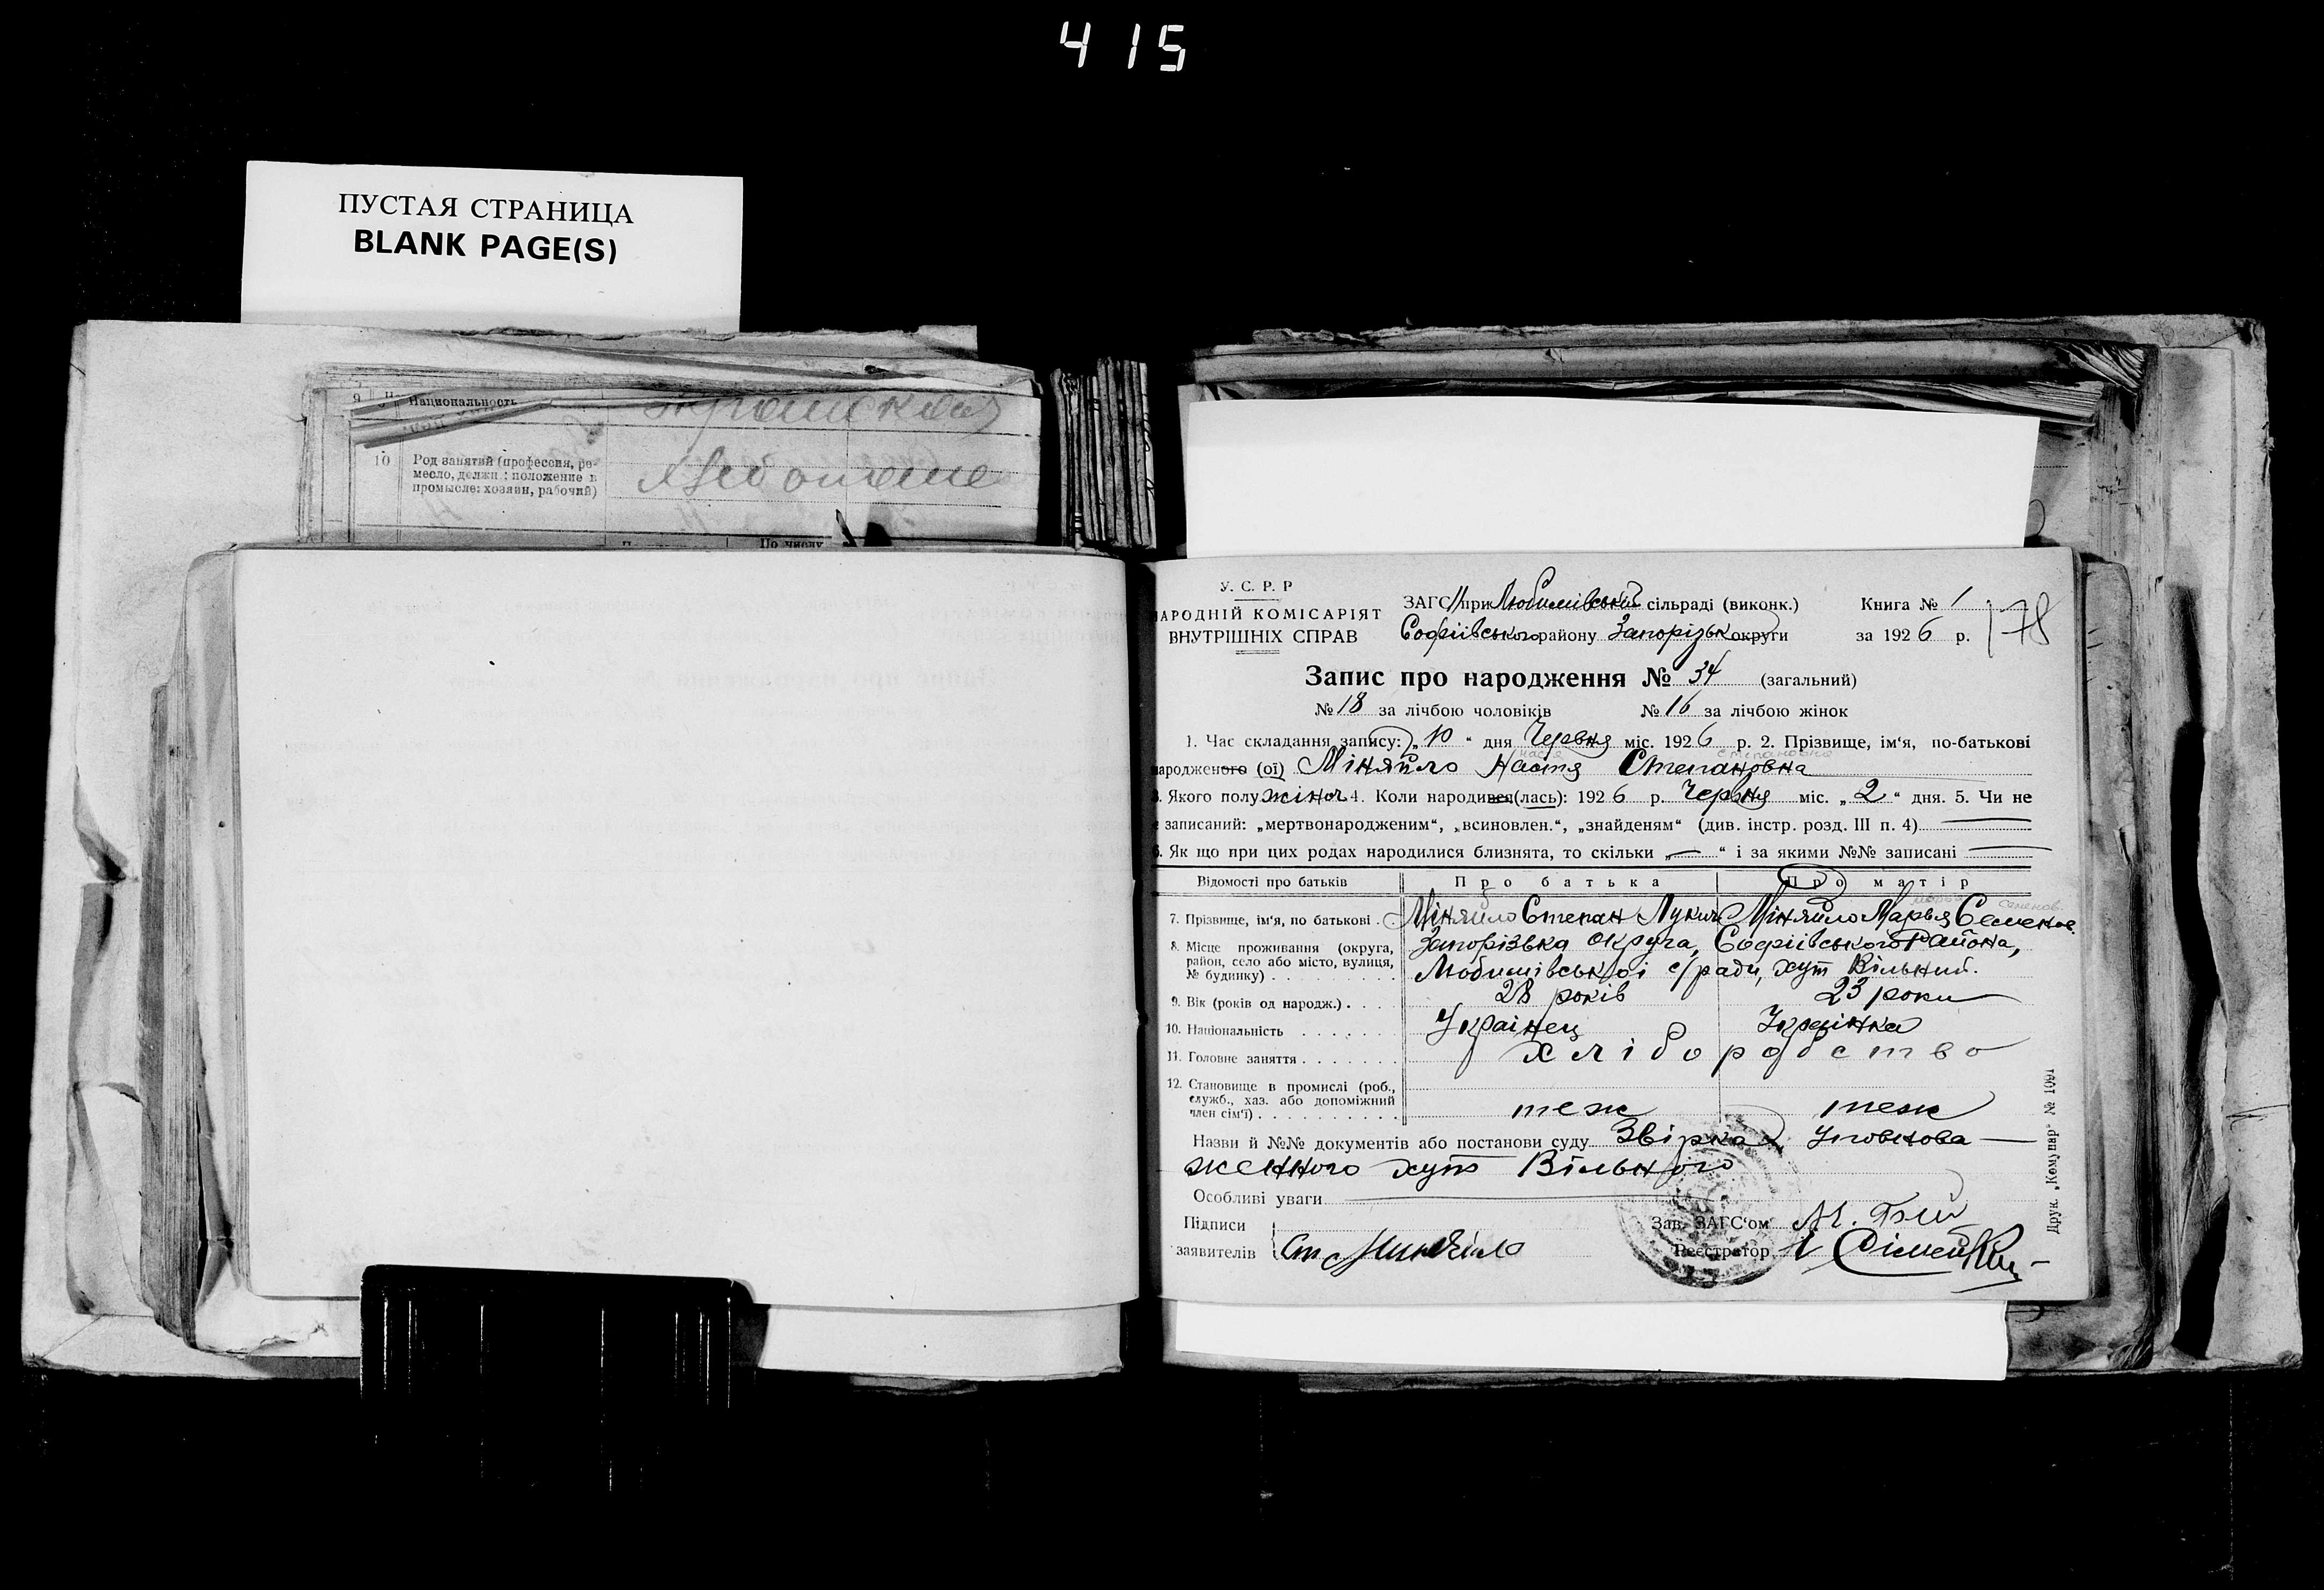 415
ПУСТАЯ СТРАНИЦА
BLANK PAGE(S)
9 Национальность
10 Род занятий (профессия, ре-
месло, должн.; положение в
промысле: хозяин, рабочий)
По числу
У. С. Р. Р
НАРОДНІЙ КОМІСАРІЯТ
ВНУТРІШНІХ СПРАВ
ЗАГС при Любимівській сільраді (виконк.)
Софіївського району Запорізьк округи
Книга № 1
за 1926 р.
178
Запис про народження № 34 (загальний)
№ 18 за лічбою чоловіків № 16 за лічбою жінок
1. Час складання запису: „10“ дня Червня міс. 1926 р. 2. Прізвище, ім‘я, по-батькові
народженого (ої) Міняйло Настя Степановна
3. Якого полу жіноч 4. Коли народився (лась): 1926 р. Червня міс. „2“ дня. 5. Чи не
є записаний: „мертвонародженим“, „всиновлен.“, „знайденям“ (див. інстр. розд. III п. 4)
6. Як що при цих родах народилися близнята, то скільки „—“ і за якими №№ записані —
Відомості про батьків Про батька Про матір
7. Прізвище, ім‘я, по батькові . Міняйло Степан Лукич Міняйло Марья Семенов.
8. Місце проживання (округа,
район, село або місто, вулиця,
№ будинку) . . . . . . .
Запорізька Округа, Софіївського Района,
Любимівської с/ради, хут Вільний.
9. Вік (років од народж.) . . . 28 років 23 роки
10. Національність . . . . . . Українец Українка
11. Головне заняття . . . . . . хліборобство
12. Становище в промислі (роб.,
служб., хаз. або допоміжний
член сім‘ї) . . . . . . . . . теж теж
Назви й №№ документів або постанови суду Звірка Уповнова—
женного хут Вільного
Особливі уваги
Підписи
заявителів Ст Миняйло
Зав. ЗАГС‘ом
Реєстратор
Друк. „Комунар“ № 1091